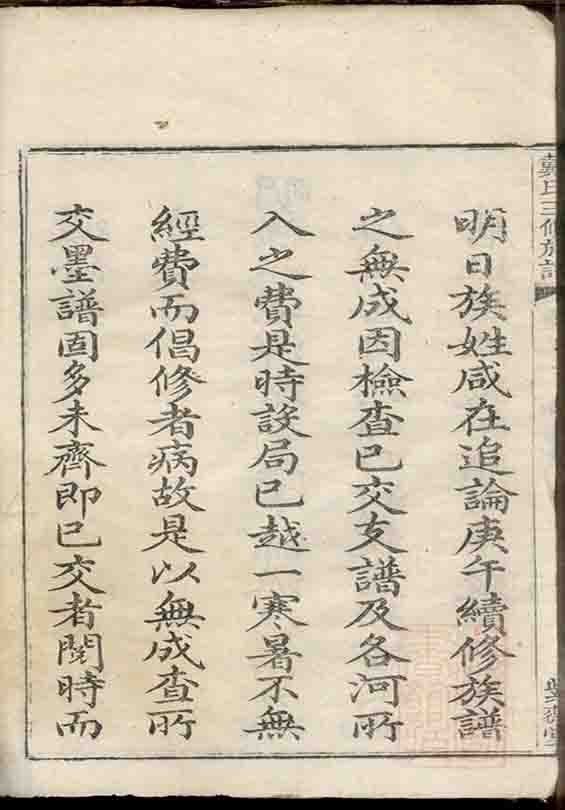 戴氏三修族譜
明日族姓咸在追論庚午續修族譜
之無成因檢查已交支譜及各河所
入之費是時設局已越一寒暑不無
經費而倡修者病故是以無成查所
交墨譜固多未齊即已交者閱時而